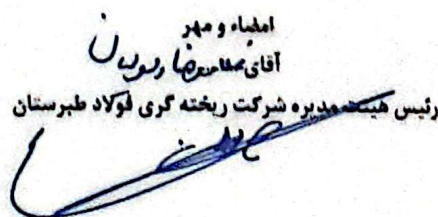 امضاء و مهر
آقای غلامرضا
رئیس هیئت مدیره شرکت ریخته گری فولاد طبرستان